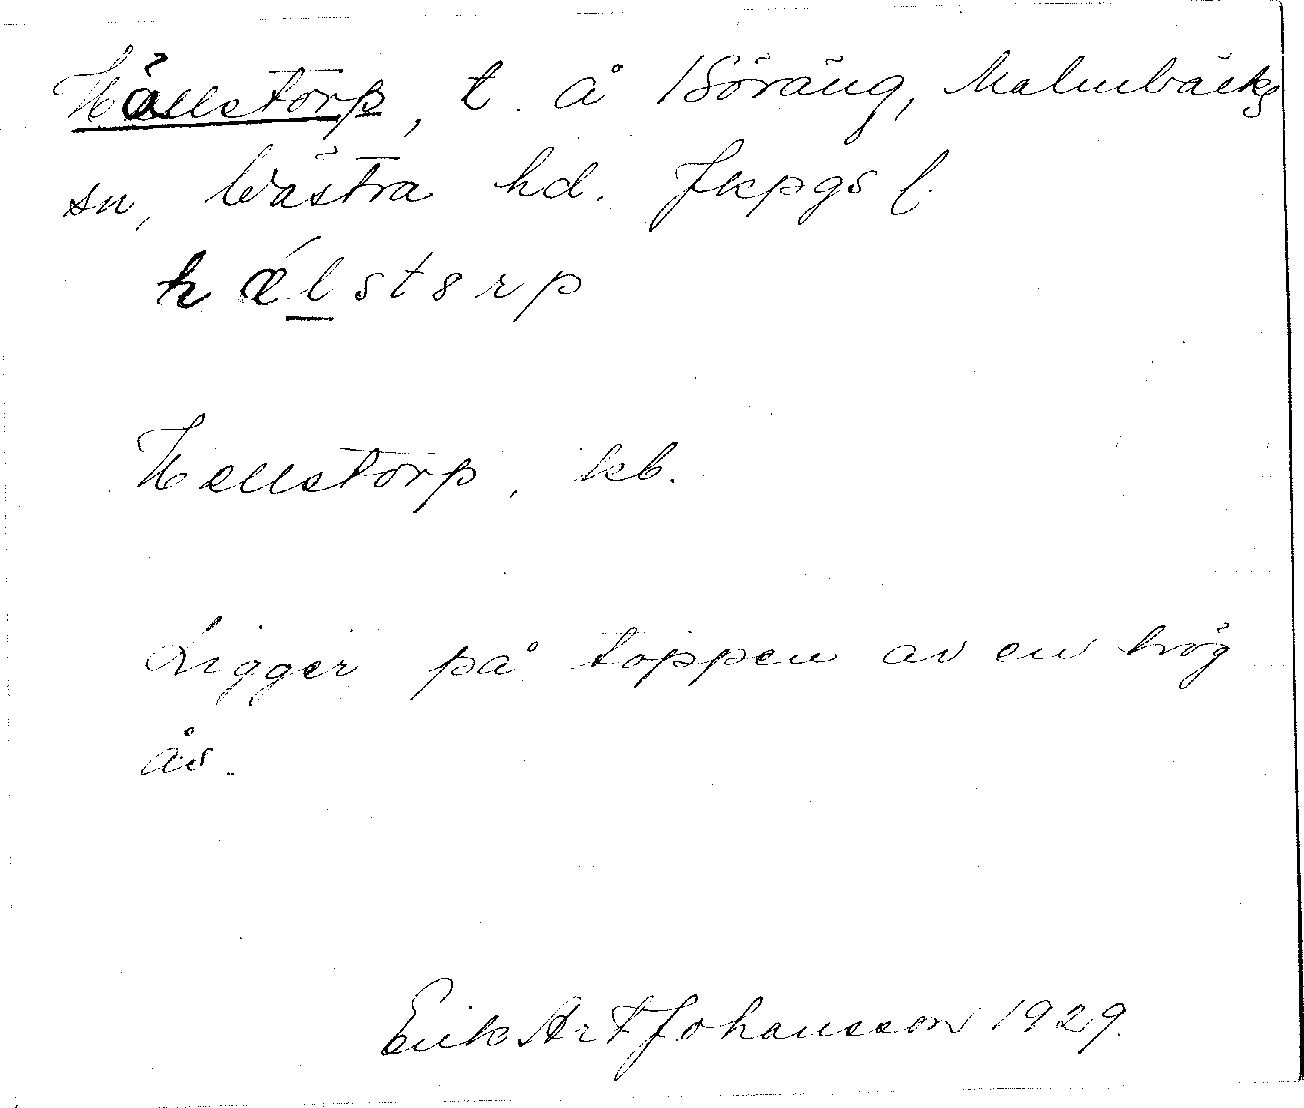 Hällstorp, t. å Böräng, Malmbäcks
sn, Västra hd. Jkpgs l.
hǽlstorp
Hellstorp, kb.
Ligger på toppen av en hög
ås.
Erik Art Johansson 1929.